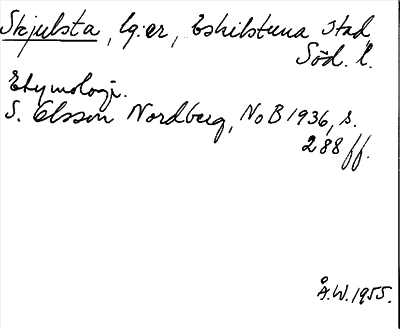 Skjulsta, lg:er, Eskilstuna stad
Söd. l.
Etymologi.
S. Olsson Nordberg, NoB 1936, s.
288 ff.
Å.W. 1955.